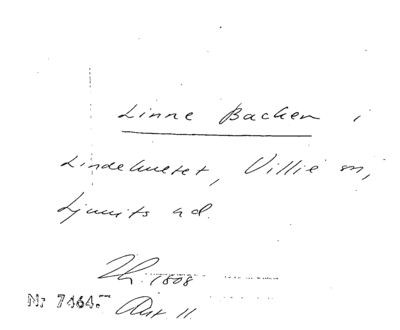 Linne Backen i
Lindekvetet, Villie sn,
Ljunits hd.
Th. 1808
Nr 7464.- Aut 11.